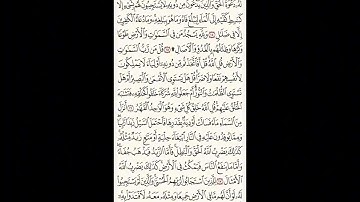 لَهُۥ دَعْوَةُ ٱلْحَقِّ وَٱلَّذِينَ يَدْعُونَ مِن دُونِهِۦ لَا يَسْتَجِيبُونَ لَهُم بِشَىْءٍ إِلَّا
كَبَٰسِطِ كَفَّيْهِ إِلَى ٱلْمَآءِ لِيَبْلُغَ فَاهُ وَمَا هُوَ بِبَٰلِغِهِۦ وَمَا دُعَآءُ ٱلْكَٰفِرِينَ
إِلَّا فِى ضَلَٰلٍ ١٤ وَلِلَّهِ يَسْجُدُ مَن فِى ٱلسَّمَٰوَٰتِ وَٱلْأَرْضِ طَوْعًا
وَكَرْهًا وَظِلَٰلُهُم بِٱلْغُدُوِّ وَٱلْءَاصَالِ ۩ ١٥ قُلْ مَن رَّبُّ ٱلسَّمَٰوَٰتِ
وَٱلْأَرْضِ قُلِ ٱللَّهُ قُلْ أَفَٱتَّخَذْتُم مِّن دُونِهِۦٓ أَوْلِيَآءَ لَا يَمْلِكُونَ
لِأَنفُسِهِمْ نَفْعًا وَلَا ضَرًّا قُلْ هَلْ يَسْتَوِى ٱلْأَعْمَىٰ وَٱلْبَصِيرُ أَمْ هَلْ
تَسْتَوِى ٱلظُّلُمَٰتُ وَٱلنُّورُ أَمْ جَعَلُوا۟ لِلَّهِ شُرَكَآءَ خَلَقُوا۟ كَخَلْقِهِۦ فَتَشَٰبَهَ
ٱلْخَلْقُ عَلَيْهِمْ قُلِ ٱللَّهُ خَٰلِقُ كُلِّ شَىْءٍ وَهُوَ ٱلْوَٰحِدُ ٱلْقَهَّٰرُ ١٦ أَنزَلَ
مِنَ ٱلسَّمَآءِ مَآءً فَسَالَتْ أَوْدِيَةٌۢ بِقَدَرِهَا فَٱحْتَمَلَ ٱلسَّيْلُ زَبَدًا رَّابِيًا
وَمِمَّا يُوقِدُونَ عَلَيْهِ فِى ٱلنَّارِ ٱبْتِغَآءَ حِلْيَةٍ أَوْ مَتَٰعٍ زَبَدٌ مِّثْلُهُۥ
كَذَٰلِكَ يَضْرِبُ ٱللَّهُ ٱلْحَقَّ وَٱلْبَٰطِلَ فَأَمَّا ٱلزَّبَدُ فَيَذْهَبُ جُفَآءً
وَأَمَّا مَا يَنفَعُ ٱلنَّاسَ فَيَمْكُثُ فِى ٱلْأَرْضِ كَذَٰلِكَ يَضْرِبُ ٱللَّهُ
ٱلْأَمْثَالَ ١٧ لِلَّذِينَ ٱسْتَجَابُوا۟ لِرَبِّهِمُ ٱلْحُسْنَىٰ وَٱلَّذِينَ لَمْ يَسْتَجِيبُوا۟
لَهُۥ لَوْ أَنَّ لَهُم مَّا فِى ٱلْأَرْضِ جَمِيعًا وَمِثْلَهُۥ مَعَهُۥ لَٱفْتَدَوْا۟ بِهِۦٓ